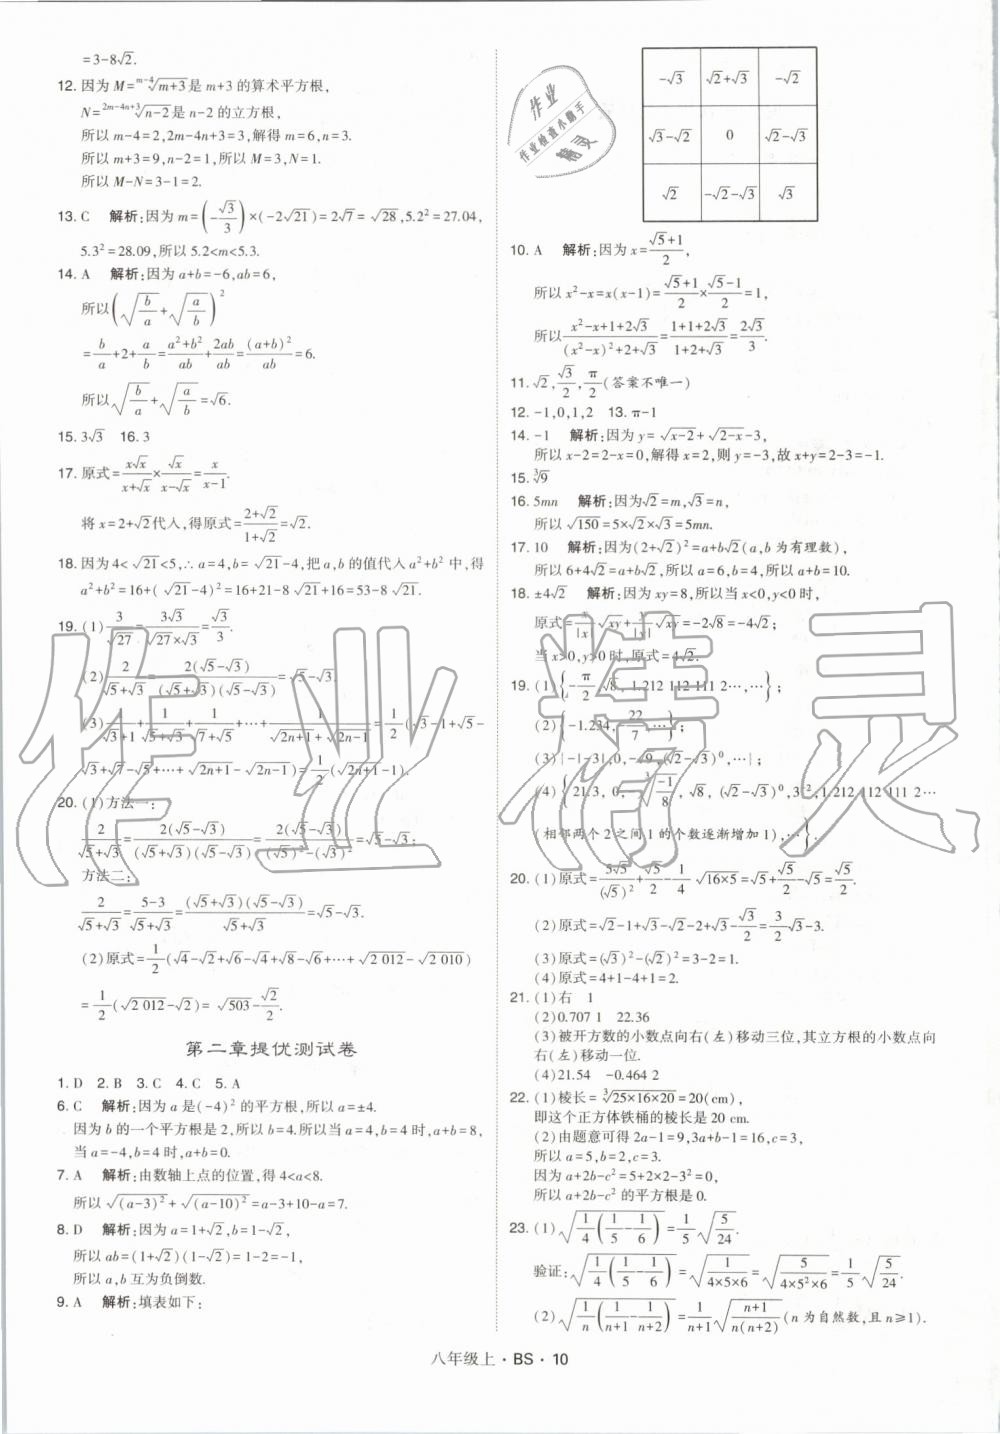 =3-8√2.
12. 因为 M=^{m-4}√(m+3)是 m+3 的算术平方根,
N=^{2m-4n+3}√(n-2)是 n-2 的立方根,
所以 m-4=2,2m-4n+3=3,解得 m=6,n=3.
所以 m+3=9,n-2=1,所以 M=3,N=1.
所以 M-N=3-1=2.
13. C 解析:因为 m=(-√3/3)×(-2√21)=2√7=√28,5.2²=27.04,
5.3²=28.09,所以 5.2<m<5.3.
14. A 解析:因为 a+b=-6,ab=6,
所以(√(b/a)+√(a/b))²
=b/a+2+a/b=(a²+b²)/ab+2ab/ab=(a+b)²/ab=6.
所以√(b/a)+√(a/b)=√6.
15. 3√3 16. 3
17. 原式=x√x/(x+√x)×√x/(x-√x)=x/(x-1).
将 x=2+√2代入,得原式=(2+√2)/(1+√2)=√2.
18. 因为 4<√21<5,∴a=4,b=√21-4,把 a,b 的值代入 a²+b² 中,得
a²+b²=16+(√21-4)²=16+21-8√21+16=53-8√21.
19. (1)3/√27=3√3/(√27×√3)=√3/3.
(2)2/(√5+√3)=2(√5-√3)/((√5+√3)(√5-√3))=√5-√3.
(3)1/(√3+1)+1/(√5+√3)+1/(√7+√5)+⋯+1/(√(2n+1)+√(2n-1))=1/2(√3-1+√5-
√3+√7-√5+⋯+√(2n+1)-√(2n-1))=1/2(√(2n+1)-1).
20. (1)方法一:
2/(√5+√3)=2(√5-√3)/((√5+√3)(√5-√3))=2(√5-√3)/((√5)²-(√3)²)=√5-√3;
方法二:
2/(√5+√3)=(5-3)/(√5+√3)=(√5+√3)(√5-√3)/(√5+√3)=√5-√3.
(2)原式=1/2(√4-√2+√6-√4+√8-√6+⋯+√2 012-√2 010)
=1/2(√2 012-√2)=√503-√2/2.
第二章提优测试卷
1. D 2. B 3. C 4. C 5. A
6. C 解析:因为 a 是(-4)² 的平方根,所以 a=±4.
因为 b 的一个平方根是 2,所以 b=4.所以当 a=4,b=4 时,a+b=8,
当 a=-4,b=4 时,a+b=0.
7. A 解析:由数轴上点的位置,得 4<a<8.
所以√((a-3)²)+√((a-10)²)=a-3+10-a=7.
8. D 解析:因为 a=1+√2,b=1-√2,
所以 ab=(1+√2)(1-√2)=1-2=-1,
所以 a,b 互为负倒数.
9. A 解析:填表如下:
-√3 √2+√3 -√2
√3-√2 0 √2-√3
√2 -√2-√3 √3
10. A 解析:因为 x=(√5+1)/2,
所以 x²-x=x(x-1)=(√5+1)/2×(√5-1)/2=1,
所以(x²-x+1+2√3)/((x²-x)²+2+√3)=(1+1+2√3)/(1+2+√3)=2√3/3.
11. √2,√3/2,π/2(答案不唯一)
12. -1,0,1,2 13. π-1
14. -1 解析:因为 y=√(x-2)+√(2-x)-3,
所以 x-2=2-x=0,解得 x=2,则 y=-3,故 x+y=2-3=-1.
15. ³√9
16. 5mn 解析:因为√2=m,√3=n,
所以√150=5×√2×√3=5mn.
17. 10 解析:因为(2+√2)²=a+b√2(a,b 为有理数),
所以 6+4√2=a+b√2,所以 a=6,b=4,所以 a+b=10.
18. ±4√2 解析:因为 xy=8,所以当 x<0,y<0 时,
原式=x/|x|√xy+y/|y|√xy=-2√8=-4√2;
当 x>0,y>0 时,原式=4√2.
19. (1){-π/2,√8,1.212 112 111 2⋯,⋯};
(2){-1.234,22/7,⋯};
(3){-|-3|,0,-√9,(√2-√3)⁰,⋯};
(4){21.3,0,³√(-1/8),√8,(√2-√3)⁰,3⁻²,1.212 112 111 2⋯
(相邻两个 2 之间 1 的个数逐渐增加 1),⋯}.
20. (1)原式=5√5/(√5)²+√5/2-1/4√(16×5)=√5+√5/2-√5=√5/2.
(2)原式=√2-1+√3-√2-2+√3-√3/2=3/2√3-3.
(3)原式=(√3)²-(√2)²=3-2=1.
(4)原式=4+1-4+1=2.
21. (1)右 1
(2)0.707 1 22.36
(3)被开方数的小数点向右(左)移动三位,其立方根的小数点向
右(左)移动一位.
(4)21.54 -0.464 2
22. (1)棱长=³√(25×16×20)=20(cm),
即这个正方体铁桶的棱长是 20 cm.
(2)由题意可得 2a-1=9,3a+b-1=16,c=3,
所以 a=5,b=2,c=3.
因为 a+2b-c²=5+2×2-3²=0,
所以 a+2b-c² 的平方根是 0.
23. (1)√(1/4(1/5-1/6))=1/5√(5/24).
验证:√(1/4(1/5-1/6))=√(1/(4×5×6))=√(5/(4×5²×6))=1/5√(5/24).
(2)√(1/n(1/(n+1)-1/(n+2)))=1/(n+1)√((n+1)/(n(n+2)))(n 为自然数,且 n≥1).
八年级上·BS·10
作业精灵
作业
作业检查小助手
精灵